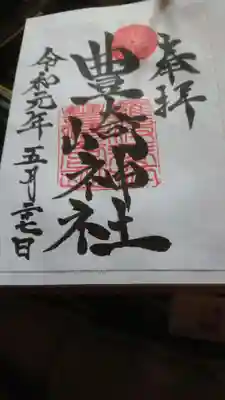 奉拝
豊崎神社
令和元年五月二七日